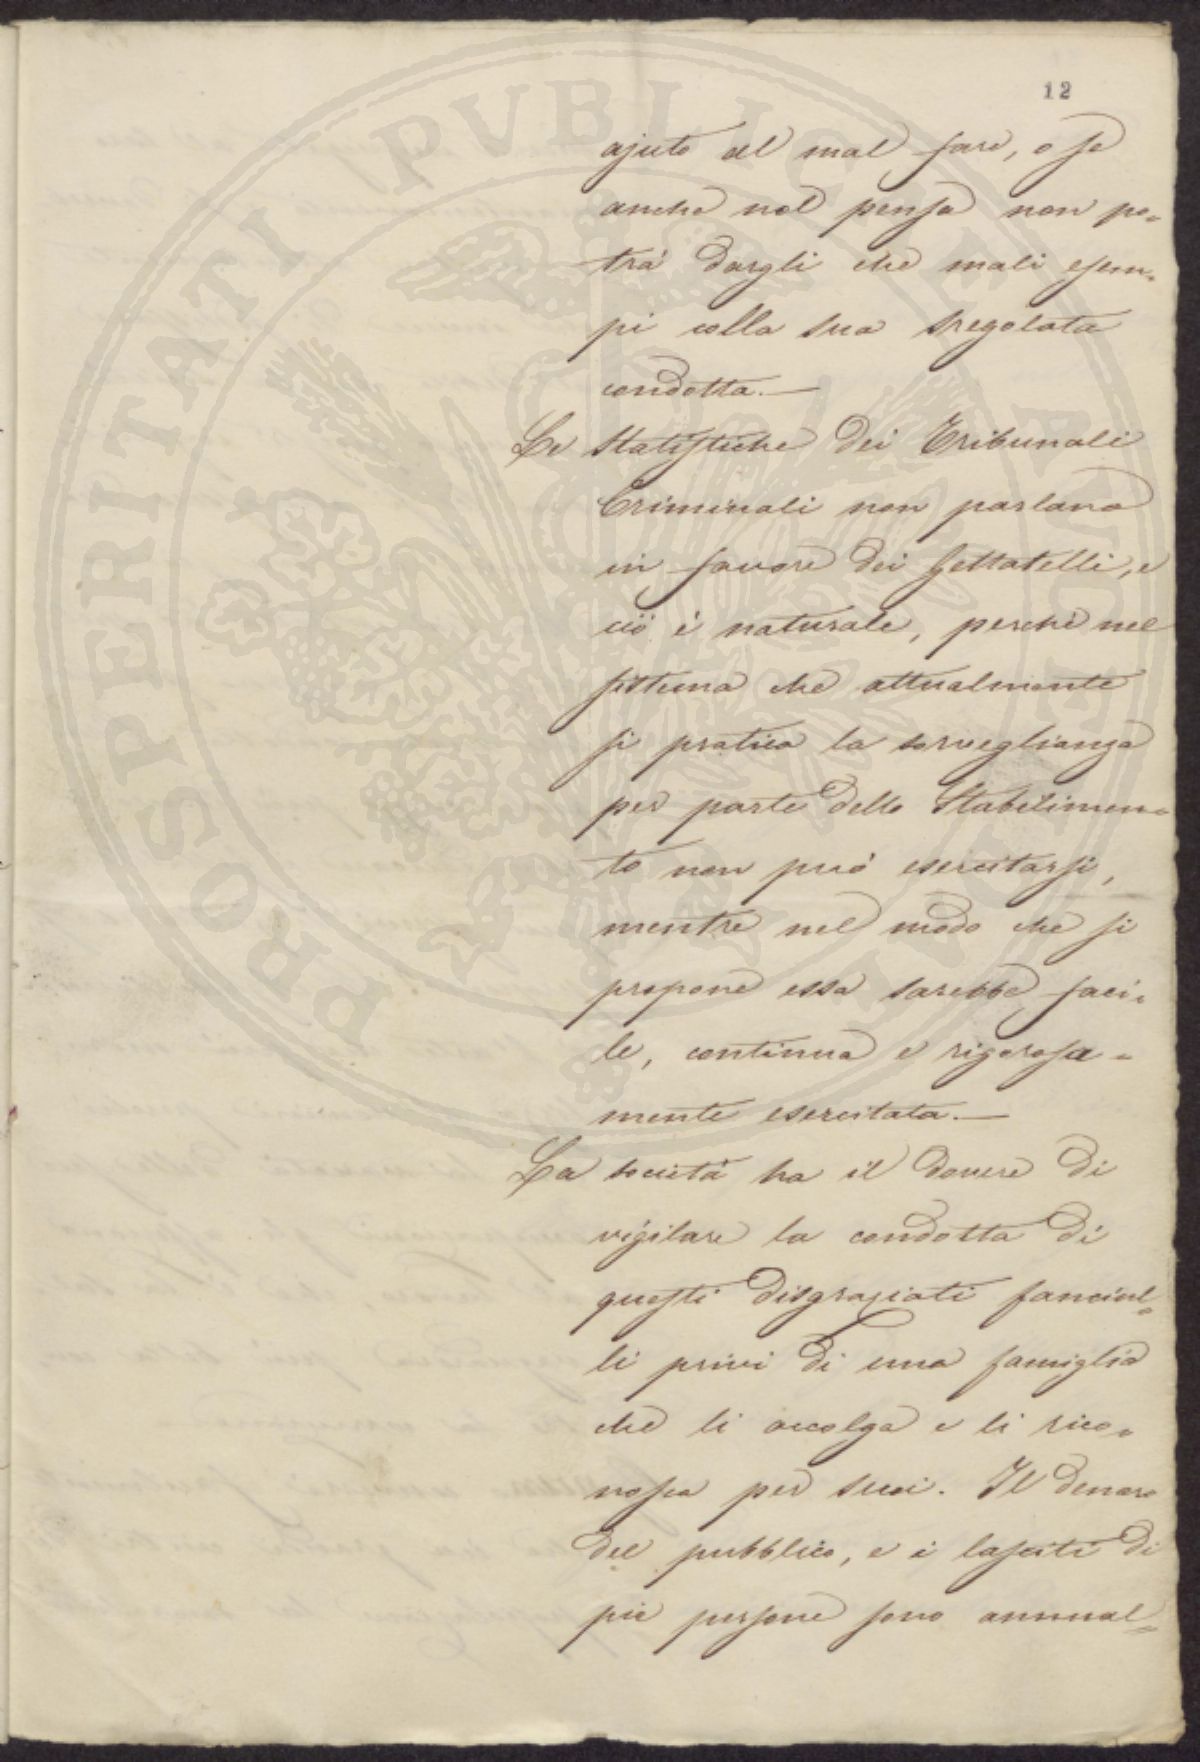 12
ajuto al mal fare, o se
anche nol pensa non po=
trà dargli che mali esem=
pi colla sua sregolata
condotta.—
Le Statistiche dei Tribunali
Criminali non parlano
in favore dei gettatelli, e
ciò è naturale, perchè nel
sistema che attualmente
si pratica la sorveglianza
per parte dello Stabilimen=
to non può esercitarsi,
mentre nel modo che si
propone essa sarebbe faci=
le, continua e rigorosa=
mente esercitata.—
La società ha il dovere di
vigilare la condotta di
questi disgraziati fanciul=
li privi di una famiglia
che li accolga e li rico=
nosca per suoi. Il denaro
del pubblico, e i lasciti di
pie persone sono annual=
PROSPERITATI PVBLICAE AVGENDAE